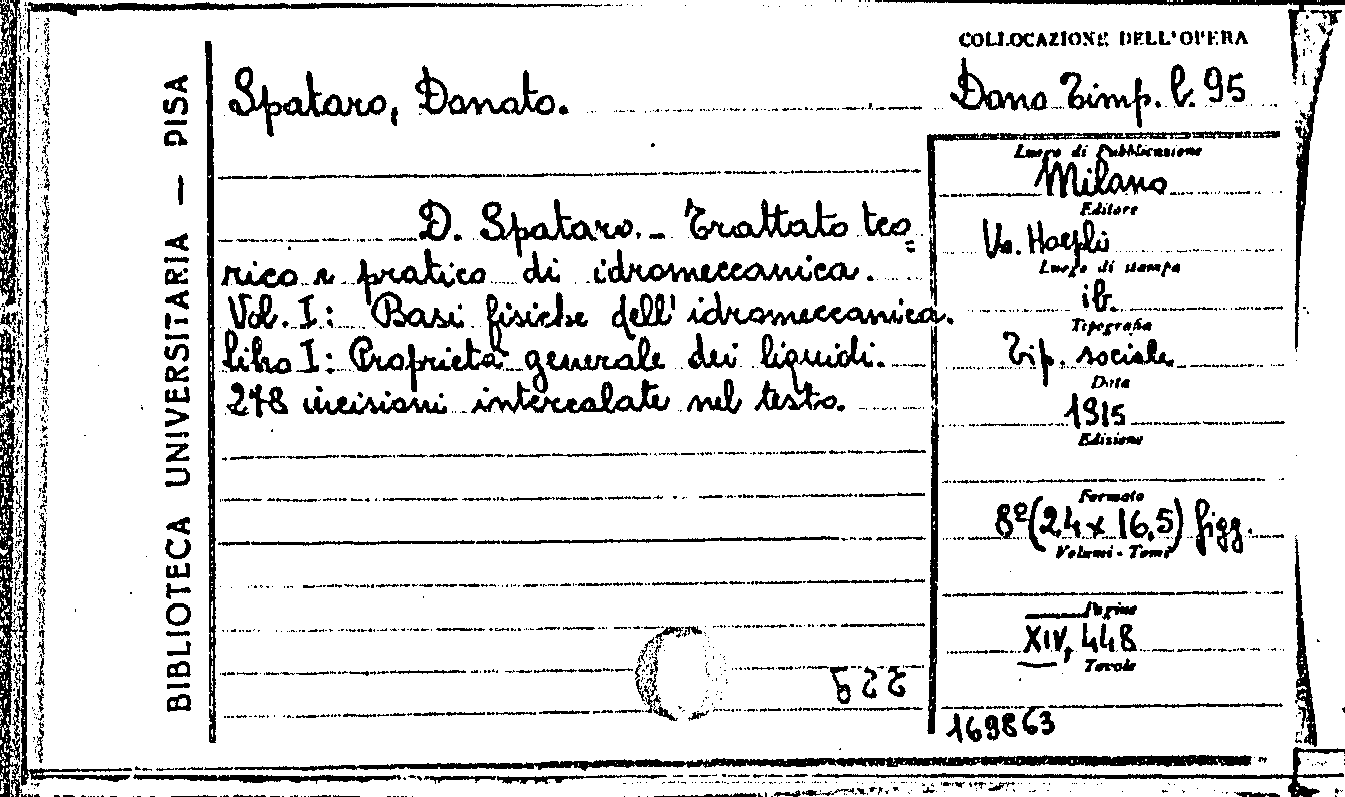 BIBLIOTECA UNIVERSITARIA — PISA
COLLOCAZIONE DELL'OPERA
Spataro, Donato.
Dono Timp. b. 95
D. Spataro. - Trattato teo=
rico e pratico di idromeccanica.
Vol. I: Basi fisiche dell'idromeccanica.
Libro I: Proprietà generale dei liquidi.
278 incisioni intercalate nel testo.
Luogo di Pubblicazione
Milano
Editore
Hoepli
Luogo di stampa
ib.
Tipografia
Tip. sociale
Data
1915
Edizione
Formato
8º (24 x 16,5) figg.
Volumi - Tomi
Pagine
XIV, 448
Tavole
169863